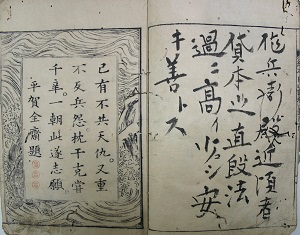 兵衛殿近頃者
貸本之直段法
過ニ高イ安
キ善トス
已有不共天仇又重
不反兵怨枕干克嘗
千辛一朝此遂志願
平賀金齋題